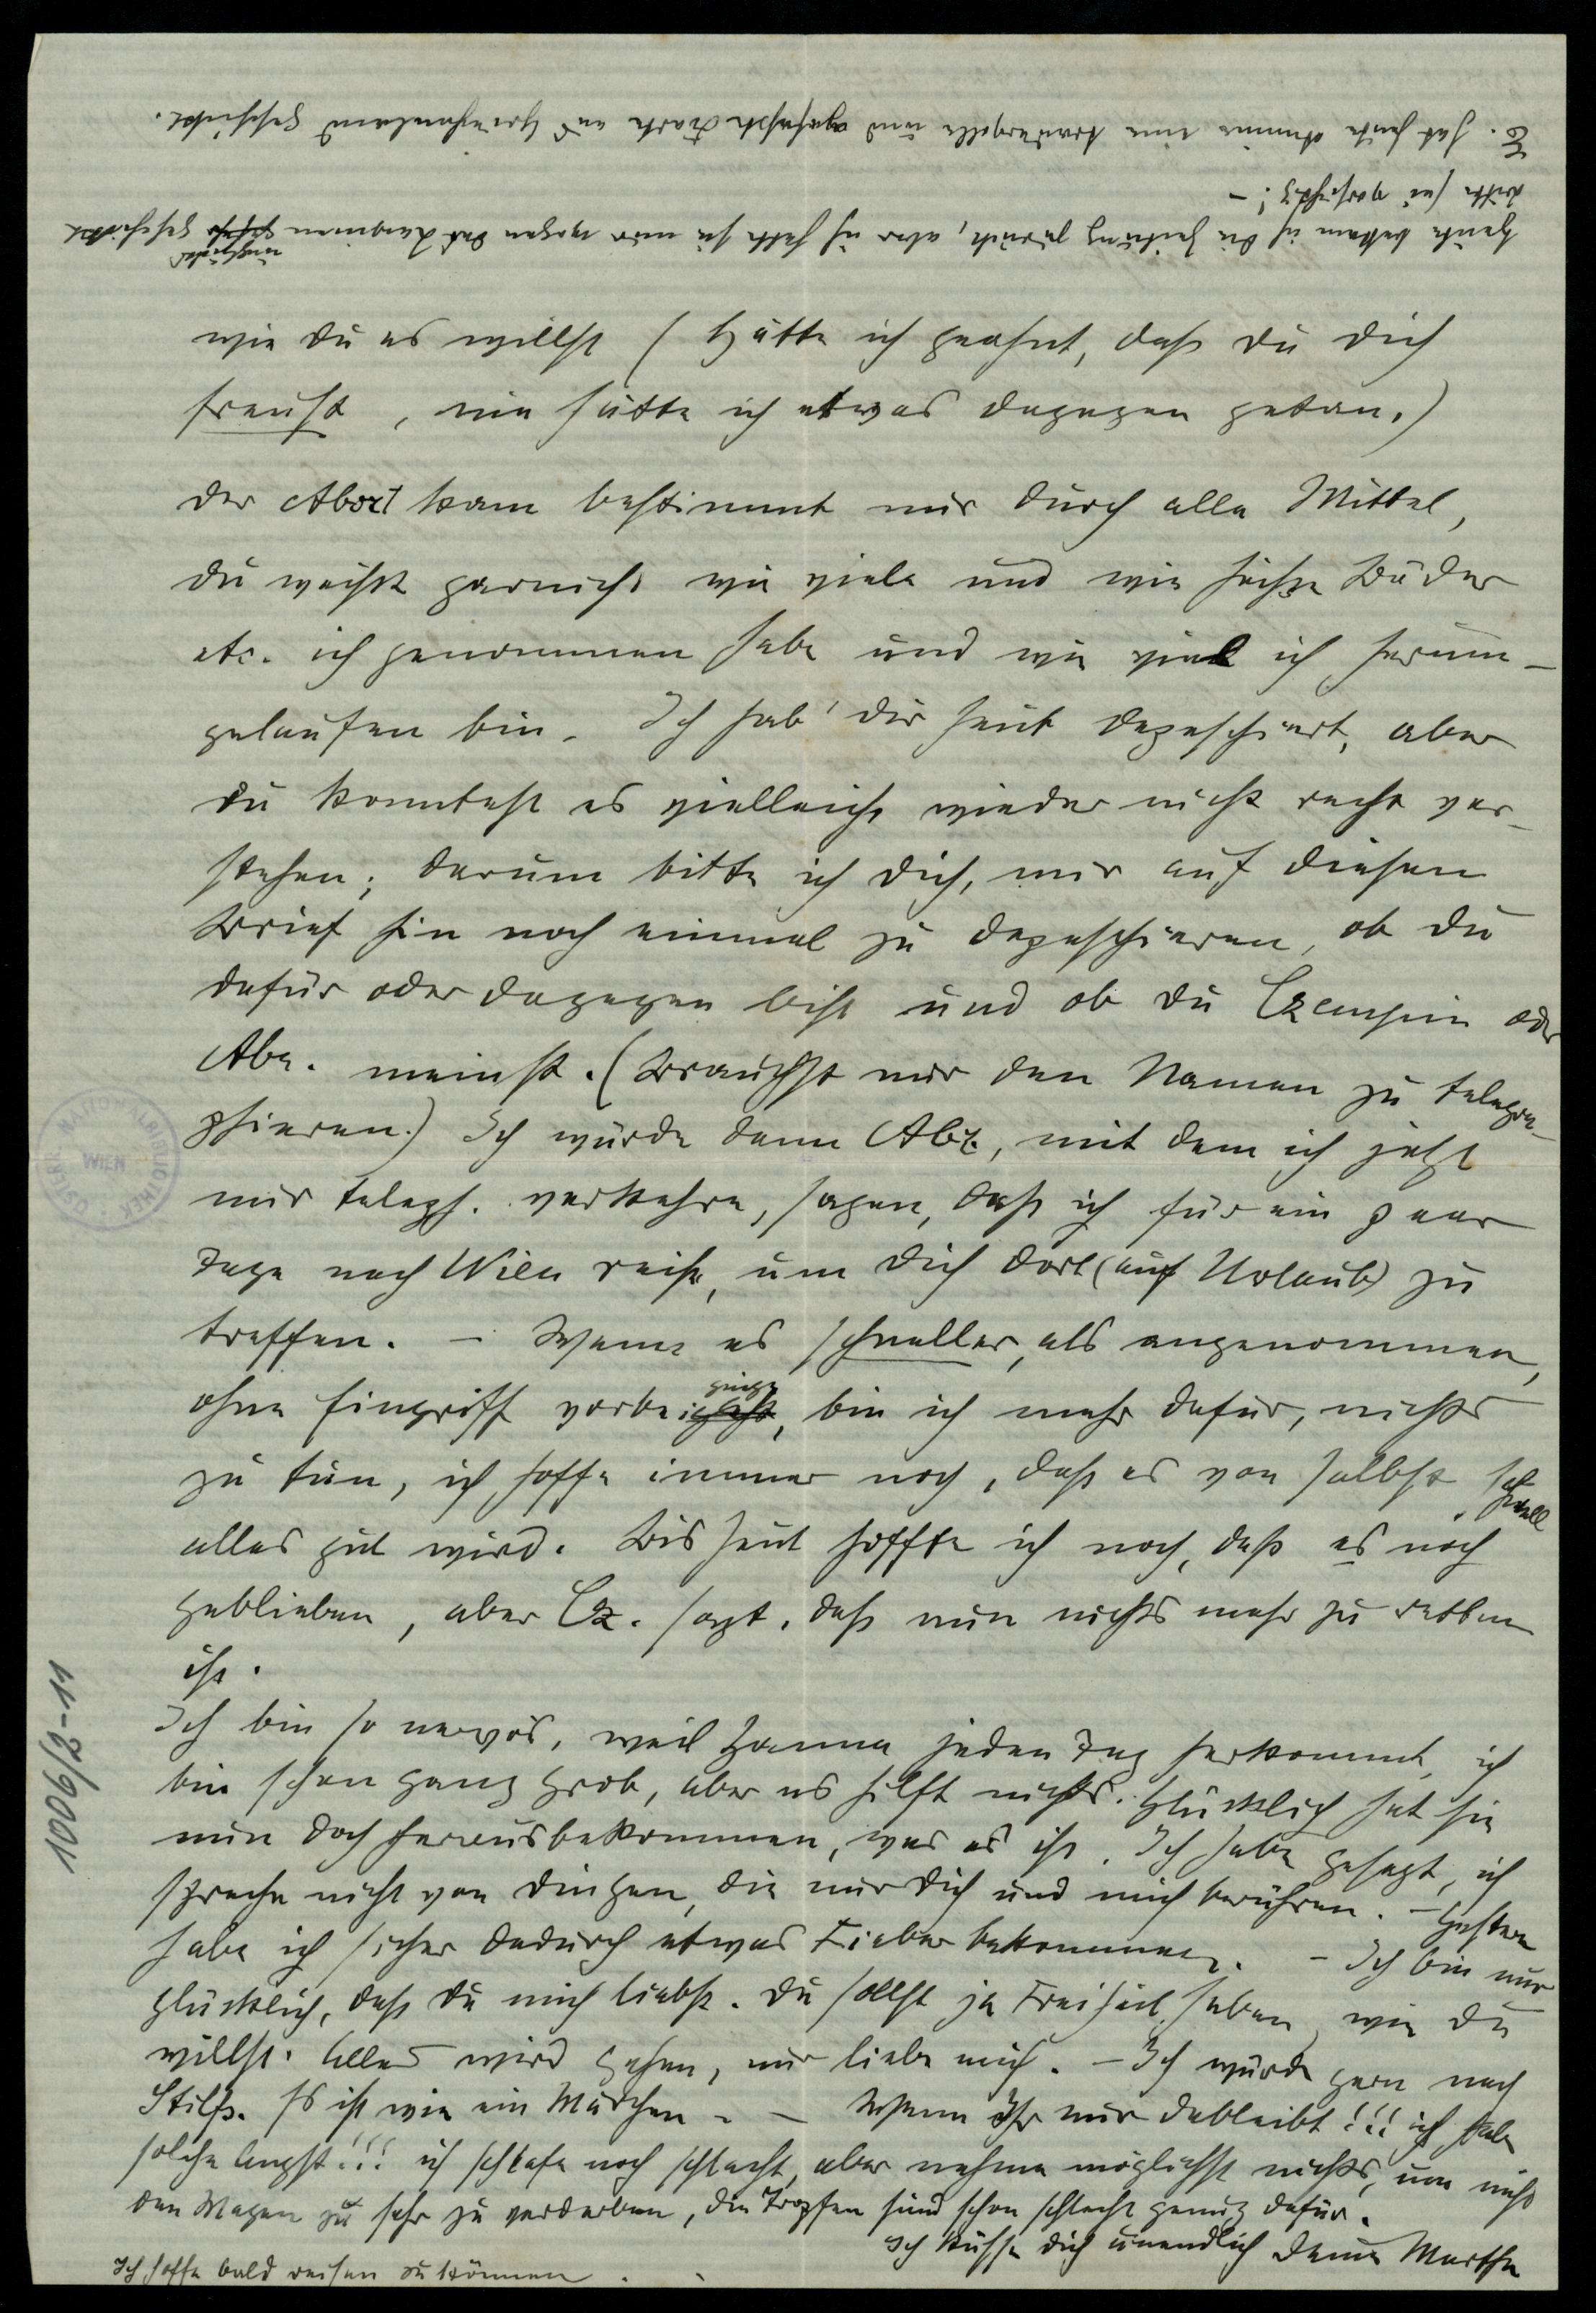 wie du es willst (Hätte ich geahnt, daß du dich
freust, nie hätte ich etwas dagegen getan.)
der Abort kam bestimmt nur durch alle Mittel,
du weißt garnicht wie viele und wie heiße Bäder
etc. ich genommen habe und wie viel ich herum-
gelaufen bin. Ich hab' dir heut depeschiert, aber
du konntest es vielleicht wieder nicht recht ver-
stehen; darum bitte ich dich, mir auf diesen
Brief hin noch einmal zu depeschieren, ob du
dafür oder dagegen bist und ob du Czempin oder
Abr. meinst. (Brauchst nur den Namen zu telegra-
phieren.) Ich würde dann Abr., mit dem ich jetzt
nur teleph. verkehre, sagen, daß ich für ein paar
Tage nach Wien reise, um dich dort (auf Urlaub) zu
treffen. – Wenn es schneller, als angenommen,
ohne Eingriff vorbei ginge, bin ich mehr dafür, nichts
zu tun, ich hoffe immer noch, daß es von selbst schnell
alles gut wird. Bis heut hoffte ich noch, daß es noch
geblieben, aber Cz. sagt, daß nun nichts mehr zu retten
ist.
Ich bin so nervös, weil Hanna jeden Tag herkommt, ich
bin schon ganz grob, aber es hilft nichts. Glücklich hat sie
nun doch herausbekommen, was es ist. Ich habe gesagt, ich
spreche nicht von Dingen, die nur dich und mich berühren. – Gestern
habe ich sicher dadurch etwas Fieber bekommen. – Ich bin nur
glücklich, daß du mich liebst. Du sollst ja Freiheit haben, wie du
willst. Alles wird gehen, nur liebe mich. – Ich würde gern nach
Stilfs. Es ist wie ein Märchen. – Wenn Ihr nur dableibt!!! ich habe
solche Angst!!! ich schlafe noch schlecht, aber nehme möglichst nichts, um nicht
den Magen zu sehr zu verderben, die Tropfen sind schon schlecht genug dafür.
Ich küsse dich unendlich Deine Martha
Ich hoffe bald reisen zu können.
Heute bekam ich die Zeitung zurück, aber ich hatte sie nur wegen das geschickt
bitte sei vorsichtig! –
E. hat heute eine und Karte aus Griechenland geschickt.
1006/2-11
ÖSTERR. NATIONALBIBLIOTHEK
WIEN